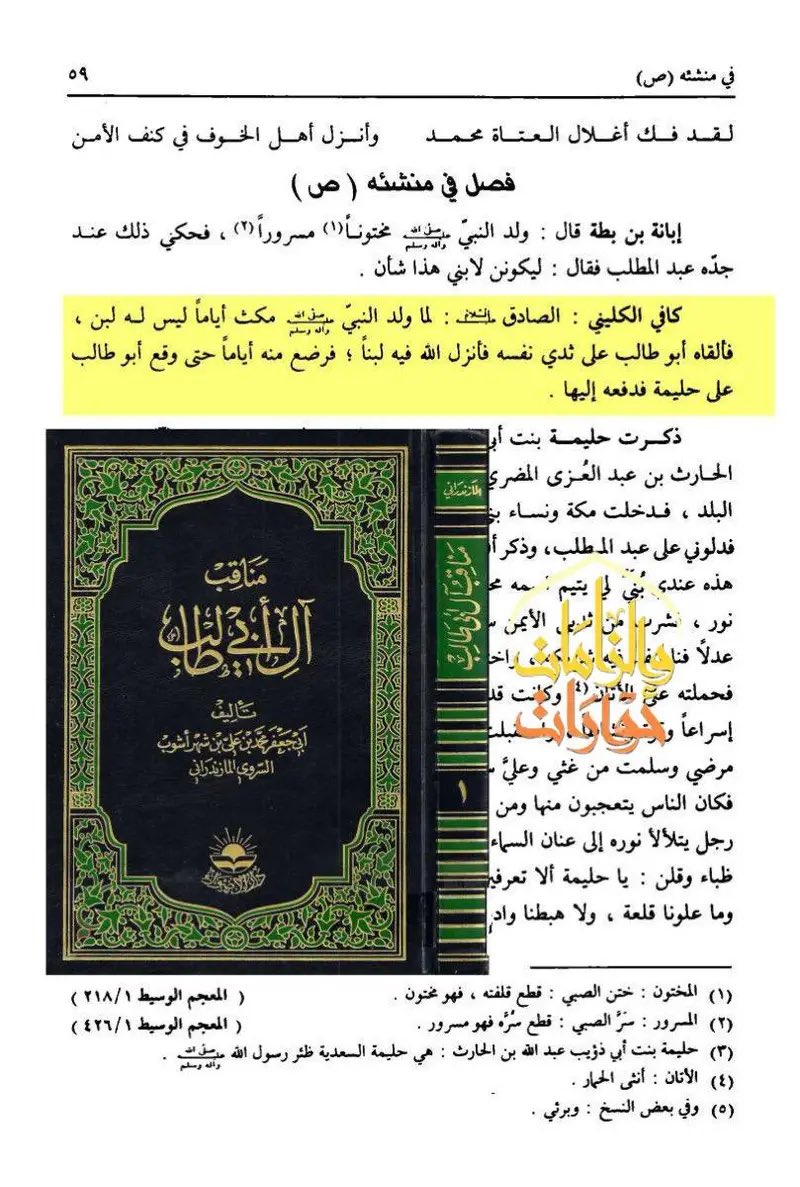 في منشئه (ص) ٥٩
لـقـد فـك أغـلال الـعـتـاة محمـد وأنـزل أهـل الخـوف في كنف الأمـن
فصل في منشئه ( ص )
إبانة بن بطة قال : ولد النبيّ صلى الله عليه وآله وسلم مختونـاً(١) مسروراً(٢) ، فحكي ذلك عنـد
جدّه عبد المطلب فقال : ليكونن لابني هذا شأن .
كافي الكليني : الصادق عليه السلام : لما ولد النبيّ صلى الله عليه وآله وسلم مكث أياماً ليس لـه لبن ،
فألقاه أبو طالب على ثدي نفسه فأنزل الله فيه لبناً ؛ فرضع منه أياماً حتى وقع أبو طالب
على حليمة فدفعه إليها .
ذكـرت حليمـة بنت أبي
الحـارث بن عبد العُـزى المضري
البلد ، فـدخلت مكة ونسـاء
فدلوني على عبد المطلب، وذكر
هذه عندي بُنيّ لي يتيم
نور ، فشرب من ثديي الأيمن
عدلاً
فحملته على الأتان(٤) وكانت
إسراعاً
مرضي وسلمت من غثي وعليّ
فكان الناس يتعجبون منها ومن
رجل يتلألأ نوره إلى عنان السماء
ظباء وقلن : يا حليمة ألا تعرفين
وما علونا قلعة ، ولا هبطنا
مناقب
آل أبي طالب
تأليف
أبي جعفر محمد بن علي بن شهر آشوب
السروي المازندراني
المازندراني
مناقب آل أبي طالب
١
والزامات
حوارات
(١) المختون : ختن الصبي : قطع قلفته ، فهو مختون . ( المعجم الوسيط ٢١٨/١ )
(٢) المسرور : سَرَّ الصبي : قطع سُرَّه فهو مسرور . ( المعجم الوسيط ٤٢٦/١ )
(٣) حليمة بنت أبي ذؤيب عبد الله بن الحارث : هي حليمة السعدية ظئر رسول الله صلى الله عليه وآله وسلم .
(٤) الأتان : أنثى الحمار .
(٥) وفي بعض النسخ : وبرئي .